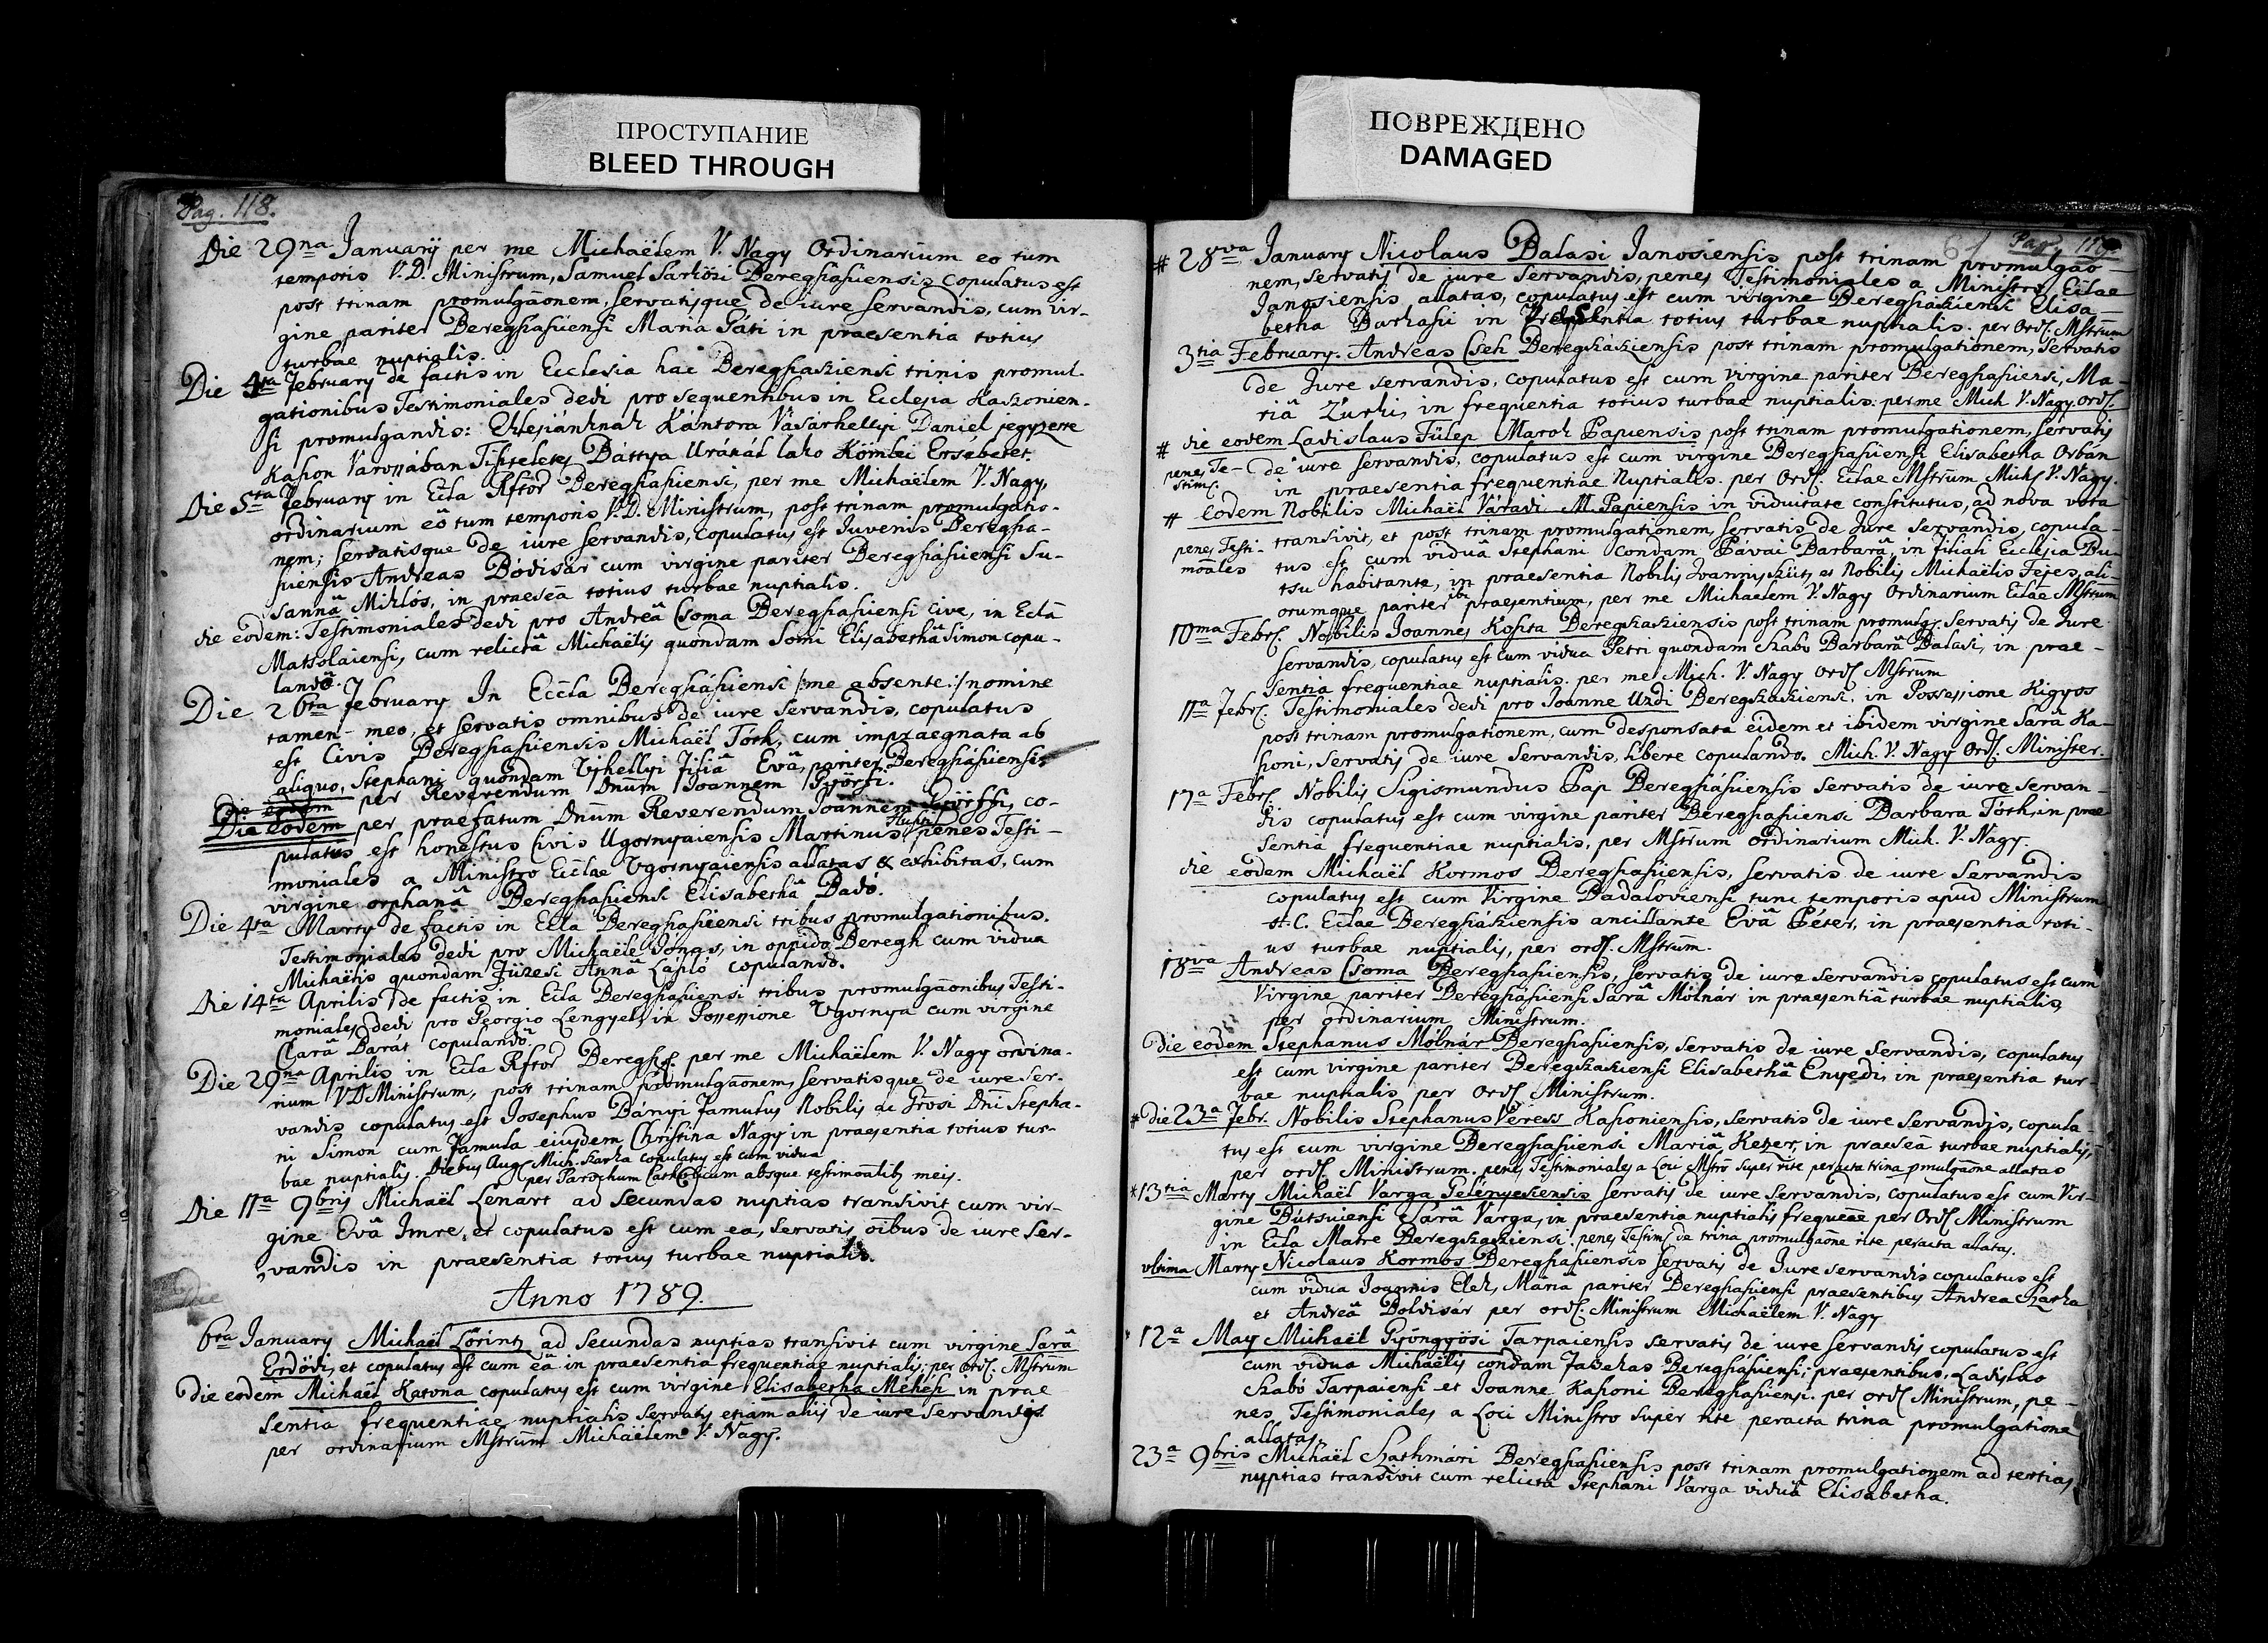 ПРОСТУПАНИЕ
BLEED THROUGH
ПОВРЕЖДЕНО
DAMAGED
Pag. 118.
Die 29na Januarij per me Michaëlem V. Nagy Ordinarium eo tum
temporis V.D. Ministrum, Samuel Sarközi Bereghasiensis copulatus est
post trinam promulgāonem, servatisque de iure servandis, cum vir-
gine pariter Bereghasiensi Maria Páti in praesentia totius
turbae nuptialis.
Die 4ta February de factis in Ecclesia hac Bereghasziensi trinis promul-
gationibus Testimoniales dedi pro sequentibus in Ecclesia Kaszonien-
si promulgandis: Eklésiánknak Kántora Vásárhellyi Daniel jegyzette
Kason Varossában Tiszteletes Báttya Uránál lako Kömlei Ersébetet.
Die 5ta February in Ecla Rftor Bereghasiensi, per me Michaëlem V. Nagy,
ordinarium eō tum temporis V.D. Ministrum, post trinam promulgatio-
nem; servatisque de iure servandis, copulatus est Iuvenis Beregha-
siensis Andreas Bódisár cum virgine pariter Bereghásiensi Su-
sannâ Miklós, in praesea totius turbae nuptialis.
die eodem: Testimoniales dedi pro Andreâ Csoma Bereghasiensi Cive, in Eclā
Matsolaiensi, cum relictâ Michaëlis quondam Somi Elisabethâ Simon copu-
landô.
Die 26ta February In Eccla Bereghásiensi /:me absente:/ nomine
tamen meo, et servatis omnibus de iure servandis, copulatus
est Civis Bereghasiensis Michaël Tóth, cum impraegnata ab
aliquo, Stephani quondam Ujhellyi filiâ Evâ, pariter Bereghásiensi
per Reverendum Dnūm Joannem Györfi.
Die eodem per praefatum Dnūm Reverendum Joannem Györffi, co-
pulatus est honestus Civis Ugornyaiensis Martinus penes Testi-
moniales a Ministro Ecclae Ugornyaiensis allatas & exhibitas, cum
virgine orphanâ Bereghasiensi Elisabethâ Badó.
Die 4ta Marty de factis in Ecla Bereghasiensi tribus promulgationibus.
Testimoniales dedi pro Michaële Jonas, in oppido Beregh cum vidua
Michaëlis quondam Füzesi Annâ Lasló copulando.
Die 14ta Aprilis de factis in Ecla Bereghasiensi tribus promulgāonibus Testi-
moniales dedi pro Georgio Lengyel, in Possessione Ugornya cum virgine
Clarâ Barát copulandô.
Die 29na Aprilis in Ecla Rftor Beregh. per me Michaëlem V. Nagy ordina-
rium VD Ministrum, post trinam promulgāonem, servatisque de iure ser-
vandis copulatus est Josephus Bányi famulus Nobilis ac Grosi Dni Stepha-
ni Simon cum famula eiusdem Christina Nagy in praesentia totius tur-
bae nuptialis. diebus Aug. Mich. Szarka copulatus est cum vidua
per Parochum Catholicum absque testimonialib meis.
Die 11a 9bris Michaël Lenárt ad secundas nuptias transivit cum vir-
gine Evâ Imre, et copulatus est cum ea, servatis oibus de iure ser-
vandis in praesentia totius turbae nuptialis.
Anno 1789.
6ta January Michaël Lörintz ad secundas nuptias transivit cum virgine Sarâ
Erdödi, et copulatus est cum eâ in praesentia frequentiae nuptialis; per Ord. Mstrum
Die eodem Michaël Katona copulatus est cum virgine Elisabetha Mehesi in prae
sentia frequentiae nuptialis servatis etiam aliis de iure servandis
per ordinarium Mstrūm Michaëlem V. Nagy.
61 Pag. 119.
# 28va January Nicolaus Balasi Janosiensis post trinam promulgāo-
nem, servatis de iure servandis, penes Testimoniales a Ministro Eclae
Janosiensis allatas, copulatus est cum virgine Bereghásiensi Elisa-
betha Barkasii in Praesentia totius turbae nuptialis. per Ord. Mstrūm
3tia February. Andreas Cseh Beregszásziensis post trinam promulgationem, servatis
de Iure servandis, copulatus est cum virgine pariter Bereghasiensi, Ma-
riâ Zurki, in frequentia totius turbae nuptialis: per me Mich. V. Nagy Ord.
# die eodem Ladislaus Fülep Marok Papiensis post trinam promulgationem, servatis
penes Te- de iure servandis, copulatus est cum virgine Bereghasiensi Elisabetha Orbán
stim. in praesentia frequentiae Nuptialis. per Ord. Eclae Mstrūm Mich. V. Nagy.
# Eodem Nobilis Michaël Váradi M. Papiensis in viduitate constitutus, ad nova vota
penes Testi- transivit, et post trinam promulgationem, servatis de Iure servandis, copula-
moāles tus est cum viduâ Stephani condam Pávai Barbarâ, in filiali Ecclesia Bu-
tsu habitante, in praesentia Nobilis Joannis Szüts et Nobilis Michaëlis Fejes, ali-
orumque pariter praesentium, per me Michaelem V. Nagy Ordinarium Eclae Mstrum
10ma Febr. Nobilis Joannes Kosita Beregszásziensis post trinam promulg. servatis de Iure
servandis, copulatus est cum vidua Petri quondam Szabo Barbarâ Balasi, in prae-
sentia frequentiae nuptialis. per me Mich. V. Nagy Ord. Mstrūm
11a Febr. Testimoniales dedi pro Joanne Uzdi Beregszásziensi. in Possessione Kigyos
post trinam promulgationem, cum desponsata eidem et ibidem virgine Sarâ Ka-
soni, servatis de iure servandis, libere copulando. Mich. V. Nagy Ord. Minister.
17a Febr. Nobilis Sigismundus Pap Bereghásiensis servatis de iure servan-
dis copulatus est cum virgine pariter Bereghásiensi Barbara Tóth, in prae
sentia frequentiae nuptialis, per Mstrūm Ordinarium Mich. V. Nagy.
die eodem Michaël Kormos Bereghasiensis, servatis de iure servandis
copulatus est cum Virgine Badaloviensi tunc temporis apud Ministrum
H.C. Eclae Bereghásziensis ancillante Evâ Péter, in praesentia toti-
us turbae nuptialis, per ord. Mstrūm.
18va Andreas Csoma Bereghasiensis, servatis de iure servandis copulatus est cum
Virgine pariter Bereghásiensi Sarâ Mólnár in praesentiâ turbae nuptialis,
per ordinarium Ministrum.
Die eodem Stephanus Mólnár Bereghasiensis, servatis de iure servandis, copulatus
est cum virgine pariter Beregszásziensi Elisabethâ Enyedi, in praesentia tur-
bae nuptialis per Ord. Ministrum.
# die 23a Febr. Nobilis Stephanus Veress Kasoniensis, servatis de iure servandis, copula-
tus est cum virgine Bereghasiensi Mariâ Ketzer, in praeseā turbae nuptialis,
per ord. Ministrum. penes Testimoniales a Loci Mstrō super rite peracta trina pmulgāone allatas
* 13tia Marty Michaël Varga Gelényesiensis servatis de iure servandis, copulatus est cum Vir-
gine Bùtsuiensi Sarâ Varga, in praesentia nuptialis frequeae per Ord. Ministrum
in Ecla Matre Beregszásziensi. penes Testim. de trina promulgaōne rite peracta allatas.
ultima Marty Nicolaus Kormos Bereghasiensis servatis de Iure servandis copulatus est
cum vidua Joannis Elek, Mariâ pariter Bereghasiensi praesentibus Andrea Szarka
et Andreâ Boldisár per ord. Ministrum Michaëlem V. Nagy
12a May Michaël Gyöngyösi Tarpaiensis servatis de iure servandis copulatus est
cum vidua Michaëlis condam Farkas Bereghásiensi; praesentibus, Ladislao
Szabó Tarpaiensi et Joanne Kasoni Bereghasiensi. per ord. Ministrum, pe-
nes Testimoniales a Loci Ministro super rite peracta trina promulgatione
allatas.
23a 9bris Michaël Szathmári Bereghasiensis post trinam promulgationem ad tertias
nuptias transivit cum relicta Stephani Varga viduâ Elisabetha.